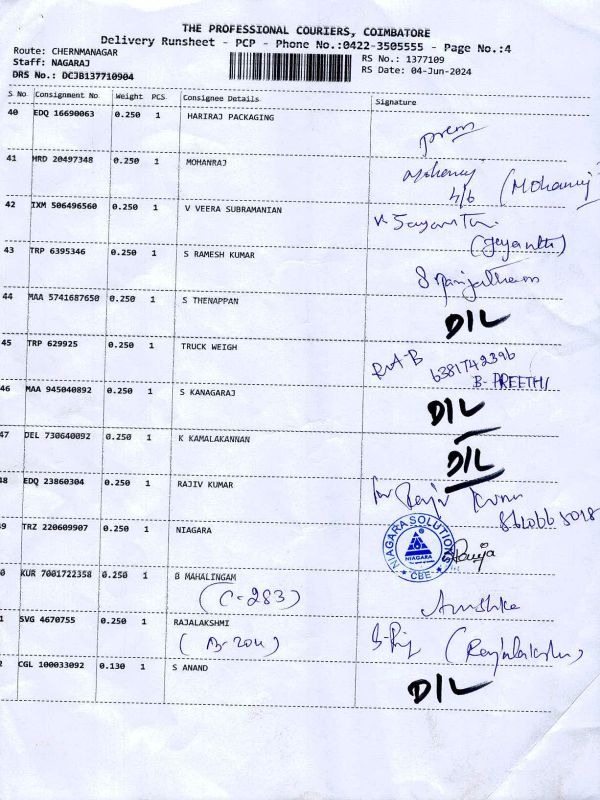 THE PROFESSIONAL COURIERS, COIMBATORE
Delivery Runsheet - PCP - Phone No.:0422-3505555 - Page No.:4
Route: CHERNMANAGAR
Staff: NAGARAJ
DRS No.: DCJB137710904
RS No.: 1377109
RS Date: 04-Jun-2024
S No Consignment No Weight PCS Consignee Details Signature
40 EDQ 16690063 0.250 1 HARIRAJ PACKAGING prem
41 MRD 20497348 0.250 1 MOHANRAJ
4/6 (Mohanraj)
42 IXM 506496560 0.250 1 V VEERA SUBRAMANIAN
(Jeyanthi)
43 TRP 6395346 0.250 1 S RAMESH KUMAR
44 MAA 5741687650 0.250 1 S THENAPPAN D/L
45 TRP 629925 0.250 1 TRUCK WEIGH 6381742396
B- PREETHI
46 MAA 945040892 0.250 1 S KANAGARAJ D/L
47 DEL 730640092 0.250 1 K KAMALAKANNAN D/L
48 EDQ 23860304 0.250 1 RAJIV KUMAR
49 TRZ 220609907 0.250 1 NIAGARA
NIAGARA SOLUTIONS
NIAGARA
CBE
0 KUR 7001722358 0.250 1 B MAHALINGAM
(C-283) Anushka
1 SVG 4670755 0.250 1 RAJALAKSHMI
(Rajalakshmi)
2 CGL 100033092 0.130 1 S ANAND D/L